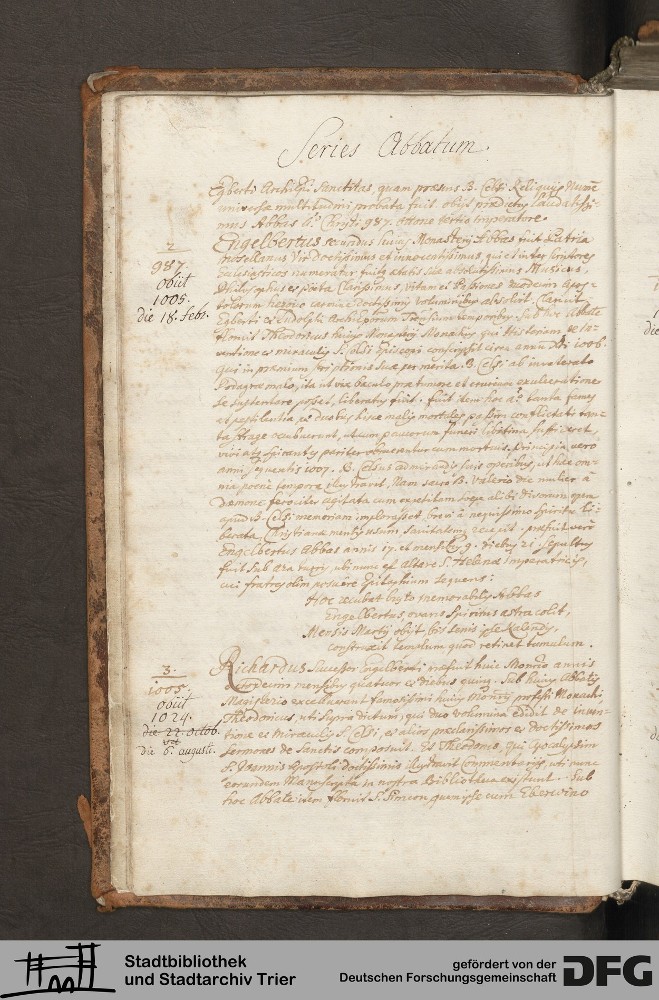 Series Abbatum.
Egberto Archiepi Sanctitas, quam praesens B. Celsi Reliquijs Numen
universae multitudini probata fuit. obijt praedictus laudatissi-
mus Abbas ao. Christi 987. ottone tertio Imperatore.
2
987.
obiit
1005.
die 18. Febr.
Engelbertus secundus huius Monasterij Abbas fuit Patria
Mosellanus Vir Doctissimus et innocentissimus, qui et inter scriptores
Ecclesiasticos numeratur fuitq aetatis suae absolutissimus Musicus,
Philosophus et Poeta Clarissimus, vitam et Passiones quorundam Apos-
tolorum heroico carmine doctissimis voluminibus absolvit. Claruit
Egberti et Ludolphi Archiepiscorum temporibus. Sub hoc Abbate
floruit Theodoricus huius Monasterij Monachus, qui Historiam de In-
ventione et miraculis S. Celsi Episcopi conscripsit circa annum Xti 1006.
qui in praemium scriptionis suae per merita B. Celsi ab inveterato
Podagrae malo, ita ut vix baculo prae tumore et crurium exulceratione
se sustentare posset, liberatus fuit. fuit item hoc ao. tanta fames
et pestilentia, ut duobus hisce malis mortales passim conflictati tan-
ta strage occubuerint, ut cum paucorum funeri libitina sufficeret,
vivi adhuc spirantes pariter obruerentur cum mortuis. Principio vero
anni sequentis 1007. B. Celsus admirandis suis operibus, ut hac om-
nia poene tempore illustraret, Nam sacro B. Valerio die mulier a
daemone ferociter agitata cum expetitam saepe alibi Divorum opem
apud B. Celsi memoriam implorasset, brevi a nequissimo spiritu li-
berata, Christianae mentis usum sanitatem recepit. praefuit vero
Engelbertus Abbas annis 17. et mensibus 9. diebus 21. Sepultus
fuit sub ara turris, ubi nunc est altare S. Helenae Imperatricis,
cui fratres olim posuere Epitaphium sequens:
Hoc recubat busto memorabilis Abbas
Engelbertus, ovans spiritus astra colit,
Mensis Martij obijt bis senis ipse Kalendis,
construxit templum quod retinet tumulum.
3.
1005.
obiit
1024.
die 22. octob.
vel
die 6. augusti.
Richardus successor Engelberti, praefuit huic Monrio annis
octodecim mensibus quatuor et diebus . Sub huius Abbatis
Magisterio excelluerunt famosissimi huius Monrij professi Monachi
Theodoricus, uti supra dictum, qui duo volumina edidit de inven-
tione et miraculis S. Celsi, et alios praeclarissimos et doctissimos
Sermones de Sanctis composuit. Et Theodorus, qui Apocalypsim
S. Joannis Apostoli doctissimis illustravit Commentarijs, uti nunc
eorundem Manuscripta in nostra Bibliotheca existunt. Sub
hoc Abbate item floruit S. Simeon, quem ipse cum Eberwino
Stadtbibliothek
und Stadtarchiv Trier
gefördert von der
Deutschen Forschungsgemeinschaft
DFG